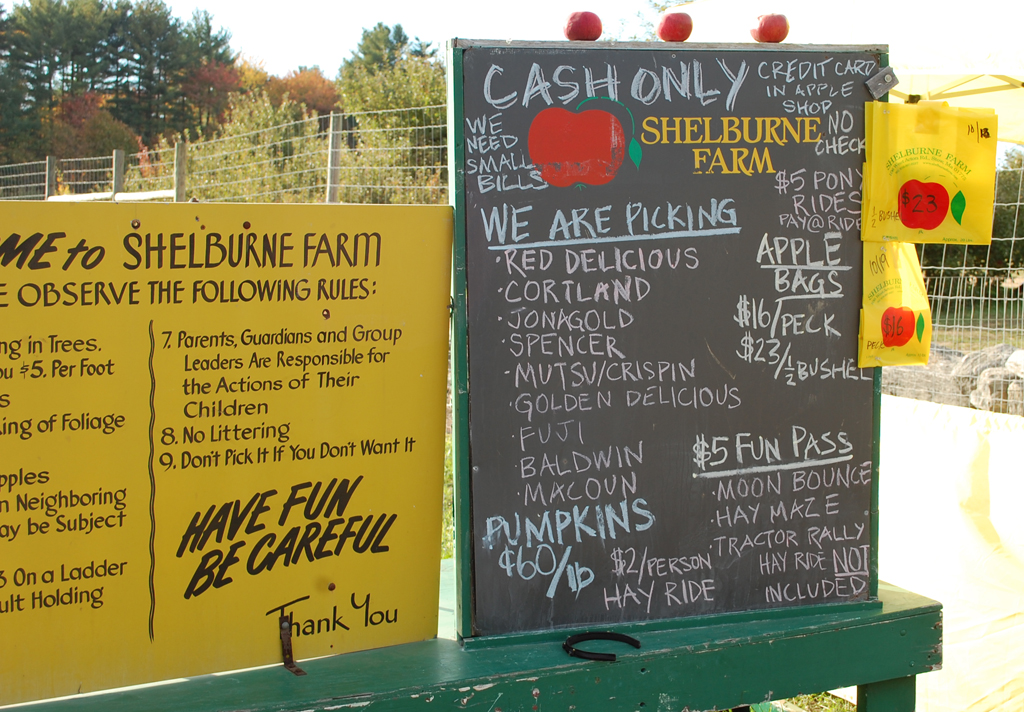 ME to SHELBURNE FARM
E OBSERVE THE FOLLOWING RULES:
ng in Trees.
ou $5. Per Foot
s
ing of Foliage
pples
n Neighboring
ay be Subject
3 On a Ladder
ult Holding
7. Parents, Guardians and Group
Leaders Are Responsible for
the Actions of Their
Children
8. No Littering
9. Don't Pick It If You Don't Want It
HAVE FUN
BE CAREFUL
Thank You
CASH ONLY
CREDIT CARD
IN APPLE
SHOP
NO
CHECK
WE
NEED
SMALL
BILLS
SHELBURNE
FARM
$5 PONY
RIDES
PAY@RIDE
WE ARE PICKING
· RED DELICIOUS
· CORTLAND
· JONAGOLD
· SPENCER
· MUTSU/CRISPIN
· GOLDEN DELICIOUS
· FUJI
· BALDWIN
· MACOUN
APPLE
BAGS
$16/PECK
$23/½ BUSHEL
PUMPKINS
¢60/lb
$2/PERSON
HAY RIDE
$5 FUN PASS
· MOON BOUNCE
· HAY MAZE
· TRACTOR RALLY
HAY RIDE NOT
INCLUDED
SHELBURNE FARM
$23
½ BUSHE
$16
PECK